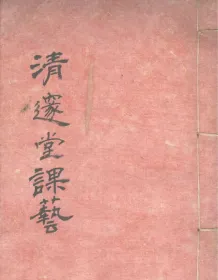 清邃堂課藝